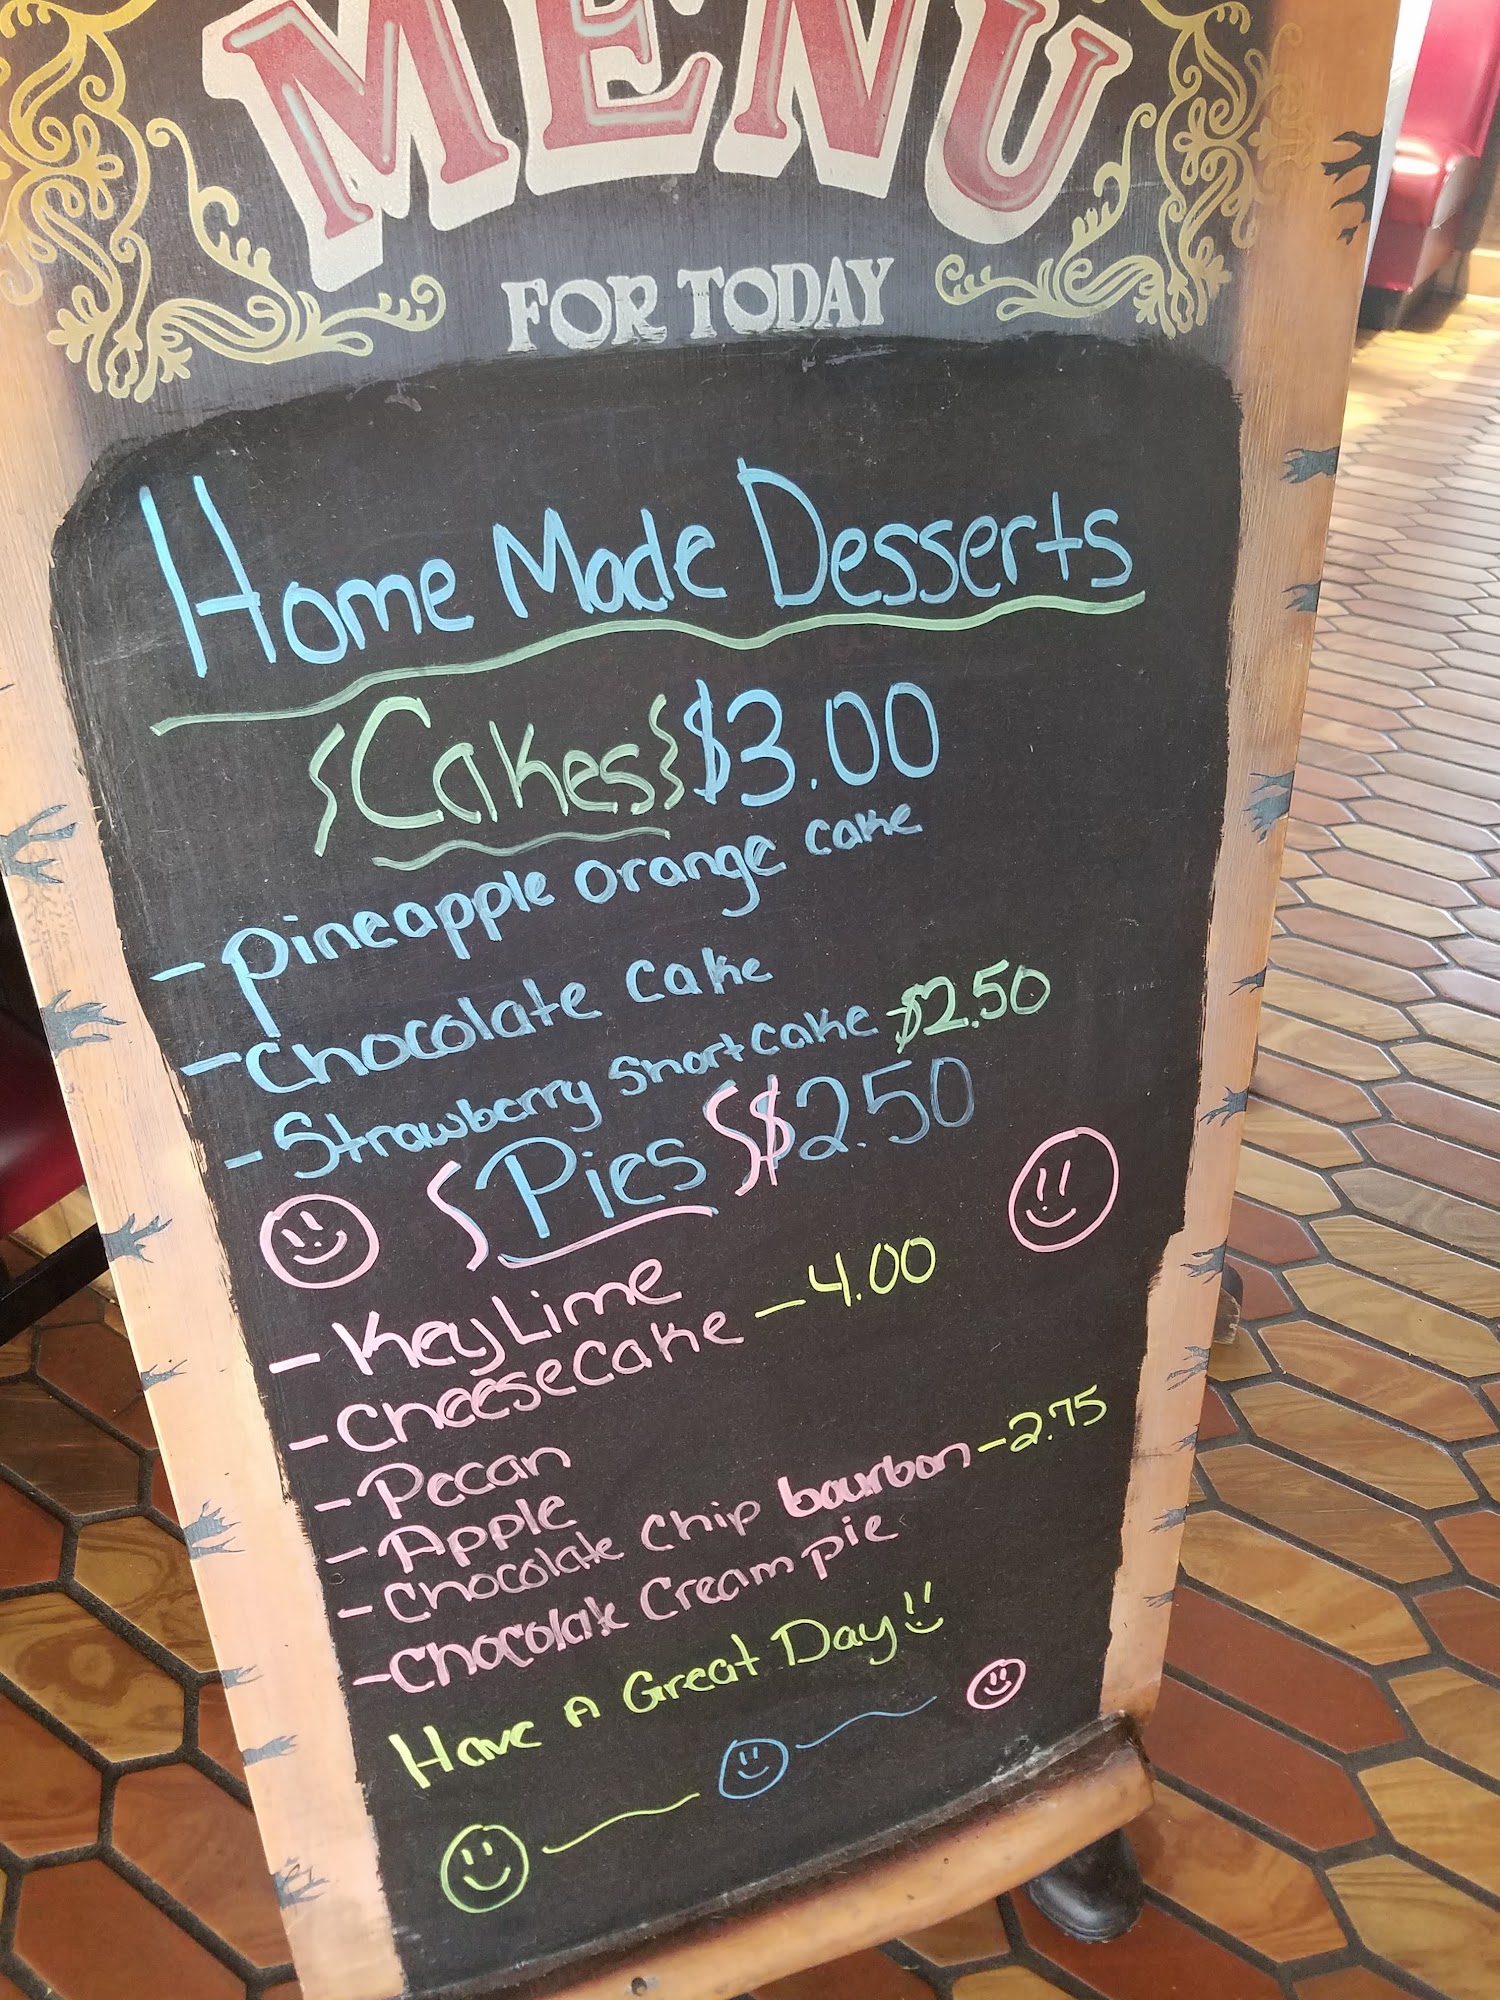 MENU
FOR TODAY
Home Made Desserts
Cakes $3.00
- Pineapple orange cake
- Chocolate cake
- Strawberry Short cake $2.50
Pies $2.50
- Key Lime
- Cheesecake - 4.00
- Pecan
- Apple
- Chocolate Chip bourbon - 2.75
- Chocolate Cream pie
Have A Great Day